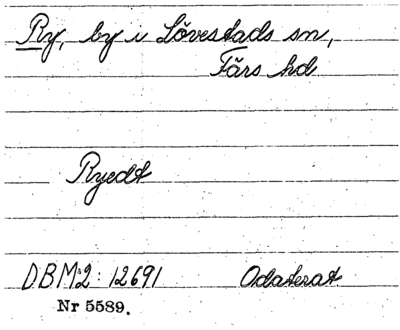 Ry, by i Lövestads sn,
Färs hd
Ryedt
DBM2: 12691 Odaterat
Nr 5589.